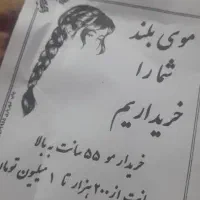 موی بلند
شما را
خریداریم
خریدار مو ۵۵ سانت به بالا
از ۲۰۰ هزار تا ۱ میلیون تومان